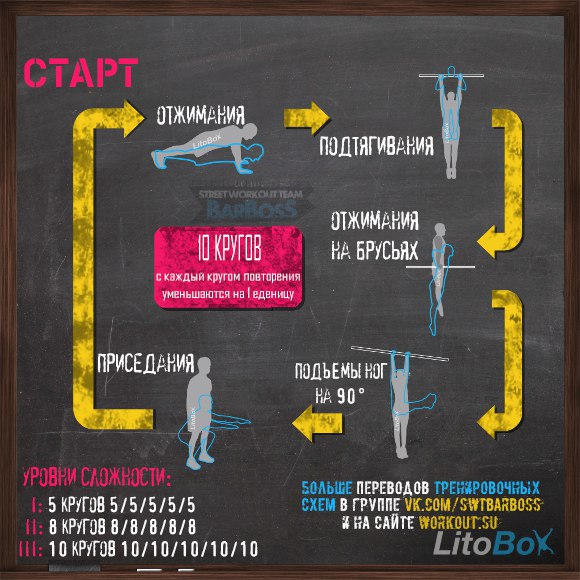 СТАРТ
ОТЖИМАНИЯ
ПОДТЯГИВАНИЯ
LitoBox
STREET WORKOUT TEAM
BARBOSS
ОТЖИМАНИЯ
НА БРУСЬЯХ
10 КРУГОВ
с каждый кругом повторения
уменьшаются на 1 еденицу
ПРИСЕДАНИЯ
ПОДЪЕМЫ НОГ
НА 90°
LitoBox
LitoBox
УРОВНИ СЛОЖНОСТИ:
I: 5 КРУГОВ 5/5/5/5/5
II: 8 КРУГОВ 8/8/8/8/8
III: 10 КРУГОВ 10/10/10/10/10
БОЛЬШЕ ПЕРЕВОДОВ ТРЕНИРОВОЧНЫХ
СХЕМ В ГРУППЕ VK.COM/SWTBARBOSS
И НА САЙТЕ WORKOUT.SU
LitoBox